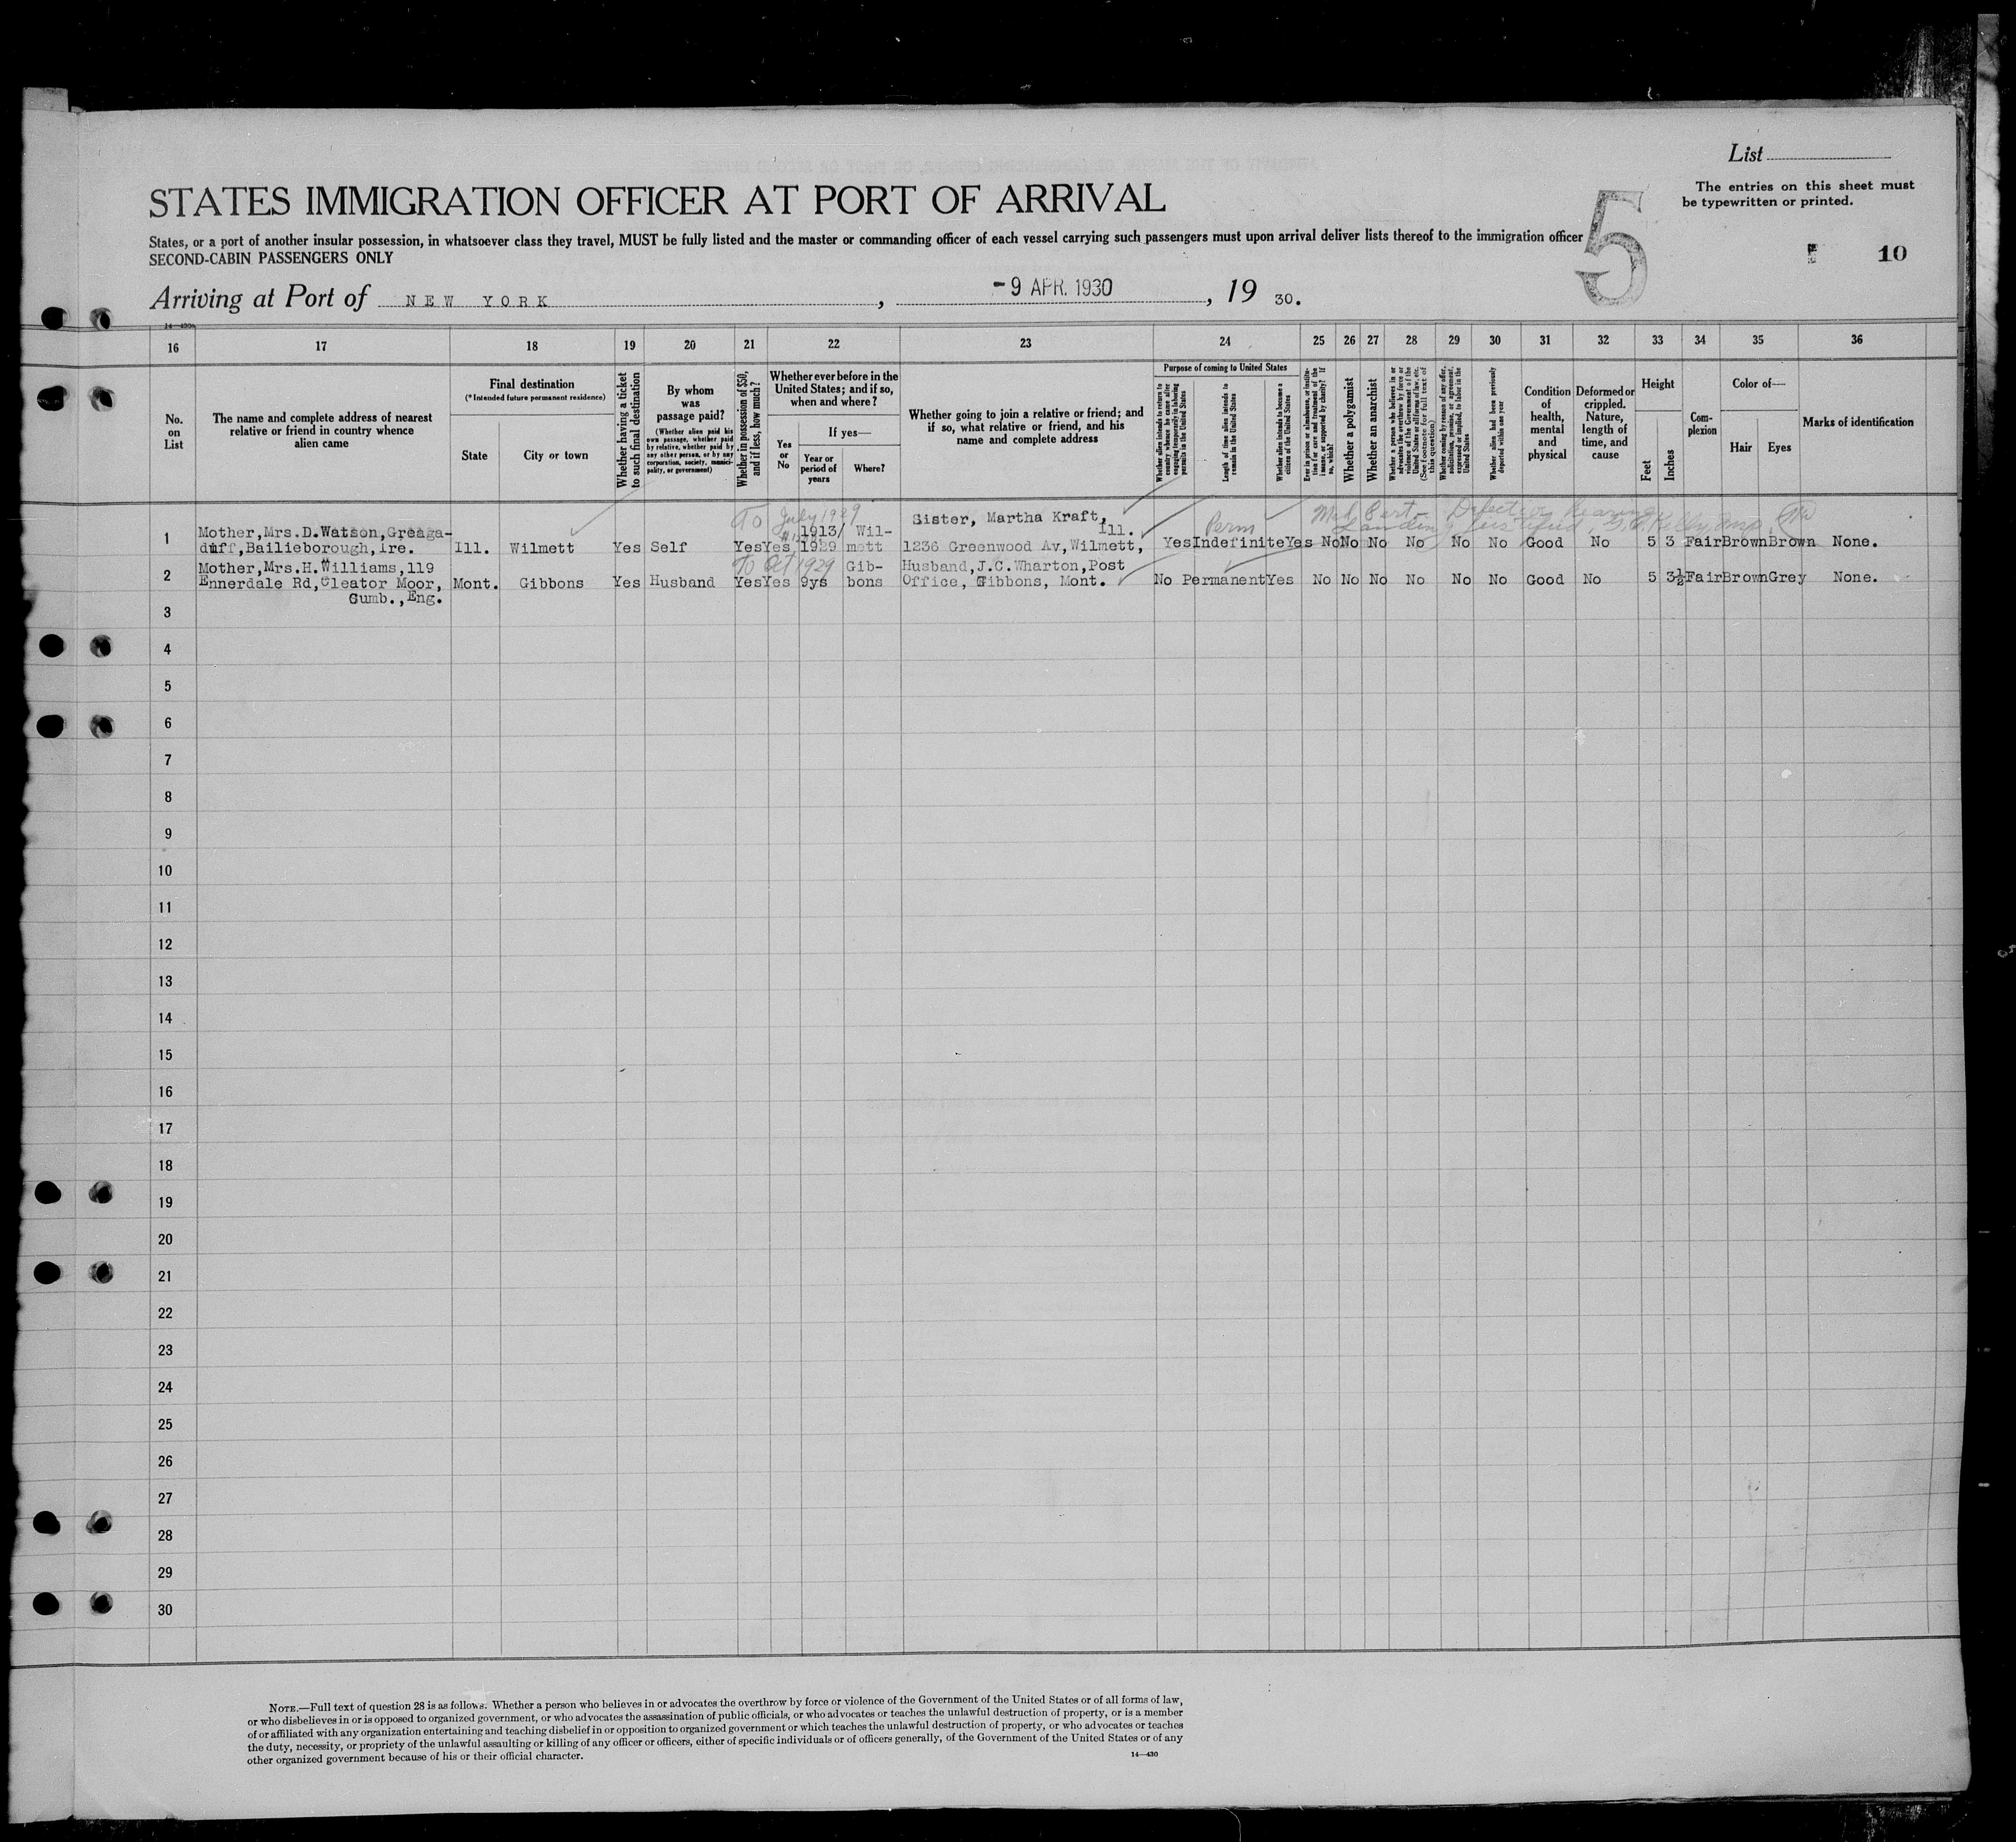 List
The entries on this sheet must
be typewritten or printed.
STATES IMMIGRATION OFFICER AT PORT OF ARRIVAL
5
10
States, or a port of another insular possession, in whatsoever class they travel, MUST be fully listed and the master or commanding officer of each vessel carrying such passengers must upon arrival deliver lists thereof to the immigration officer
SECOND-CABIN PASSENGERS ONLY
Arriving at Port of NEW YORK, -9 APR. 1930, 19 30.
14—430
16 17 18 19 20 21 22 23 24 25 26 27 28 29 30 31 32 33 34 35 36
No. on List
The name and complete address of nearest
relative or friend in country whence
alien came
Final destination
(*Intended future permanent residence)
State
City or town
Whether having a ticket
to such final destination
By whom
was
passage paid?
(Whether alien paid his
own passage, whether paid
by relative, whether paid by
any other person, or by any
corporation, society, munici-
pality, or government)
Whether in possession of $50,
and if less, how much?
Whether ever before in the
United States; and if so,
when and where?
Yes
or
No
If yes—
Year or
period of
years
Where?
Whether going to join a relative or friend; and
if so, what relative or friend, and his
name and complete address
Purpose of coming to United States
Whether alien intends to return to
country whence he came after
engaging temporarily in laboring
pursuits in the United States
Length of time alien intends to
remain in the United States
Whether alien intends to become a
citizen of the United States
Ever in prison or almshouse, or institu-
tion for care and treatment of the
insane, or supported by charity? If
so, which?
Whether a polygamist
Whether an anarchist
Whether a person who believes in or
advocates the overthrow by force or
violence of the Government of the
United States or all forms of law, etc.
(See footnote for full text of
this question)
Whether coming by reason of any offer,
solicitation, promise, or agreement,
expressed or implied, to labor in the
United States
Whether alien had been previously
deported within one year
Condition
of
health,
mental
and
physical
Deformed or
crippled.
Nature,
length of
time, and
cause
Height
Feet
Inches
Com-
plexion
Color of—
Hair
Eyes
Marks of identification
To July 1929
Perm
Med Cert - Defective hearing
Landing justified,
1 Mother, Mrs.D.Watson,Greaga- 1913/ Wil- Sister, Martha Kraft, Ill.
duff,Bailieborough,Ire. Ill. Wilmett Yes Self Yes Yes 1929 mett 1236 Greenwood Av,Wilmett, Yes Indefinite Yes No No No No No No Good No 5 3 Fair Brown Brown None.
To Oct 1929
2 Mother,Mrs.H.Williams,119 Gib- Husband,J.C.Wharton,Post
Ennerdale Rd,Cleator Moor, Mont. Gibbons Yes Husband Yes Yes 9ys bons Office, Gibbons, Mont. No Permanent Yes No No No No No No Good No 5 3½ Fair Brown Grey None.
Cumb.,Eng.
3
4
5
6
7
8
9
10
11
12
13
14
15
16
17
18
19
20
21
22
23
24
25
26
27
28
29
30
NOTE.—Full text of question 28 is as follows: Whether a person who believes in or advocates the overthrow by force or violence of the Government of the United States or of all forms of law,
or who disbelieves in or is opposed to organized government, or who advocates the assassination of public officials, or who advocates or teaches the unlawful destruction of property, or is a member
of or affiliated with any organization entertaining and teaching disbelief in or opposition to organized government or which teaches the unlawful destruction of property, or who advocates or teaches
the duty, necessity, or propriety of the unlawful assaulting or killing of any officer or officers, either of specific individuals or of officers generally, of the Government of the United States or of any
other organized government because of his or their official character.
14—430